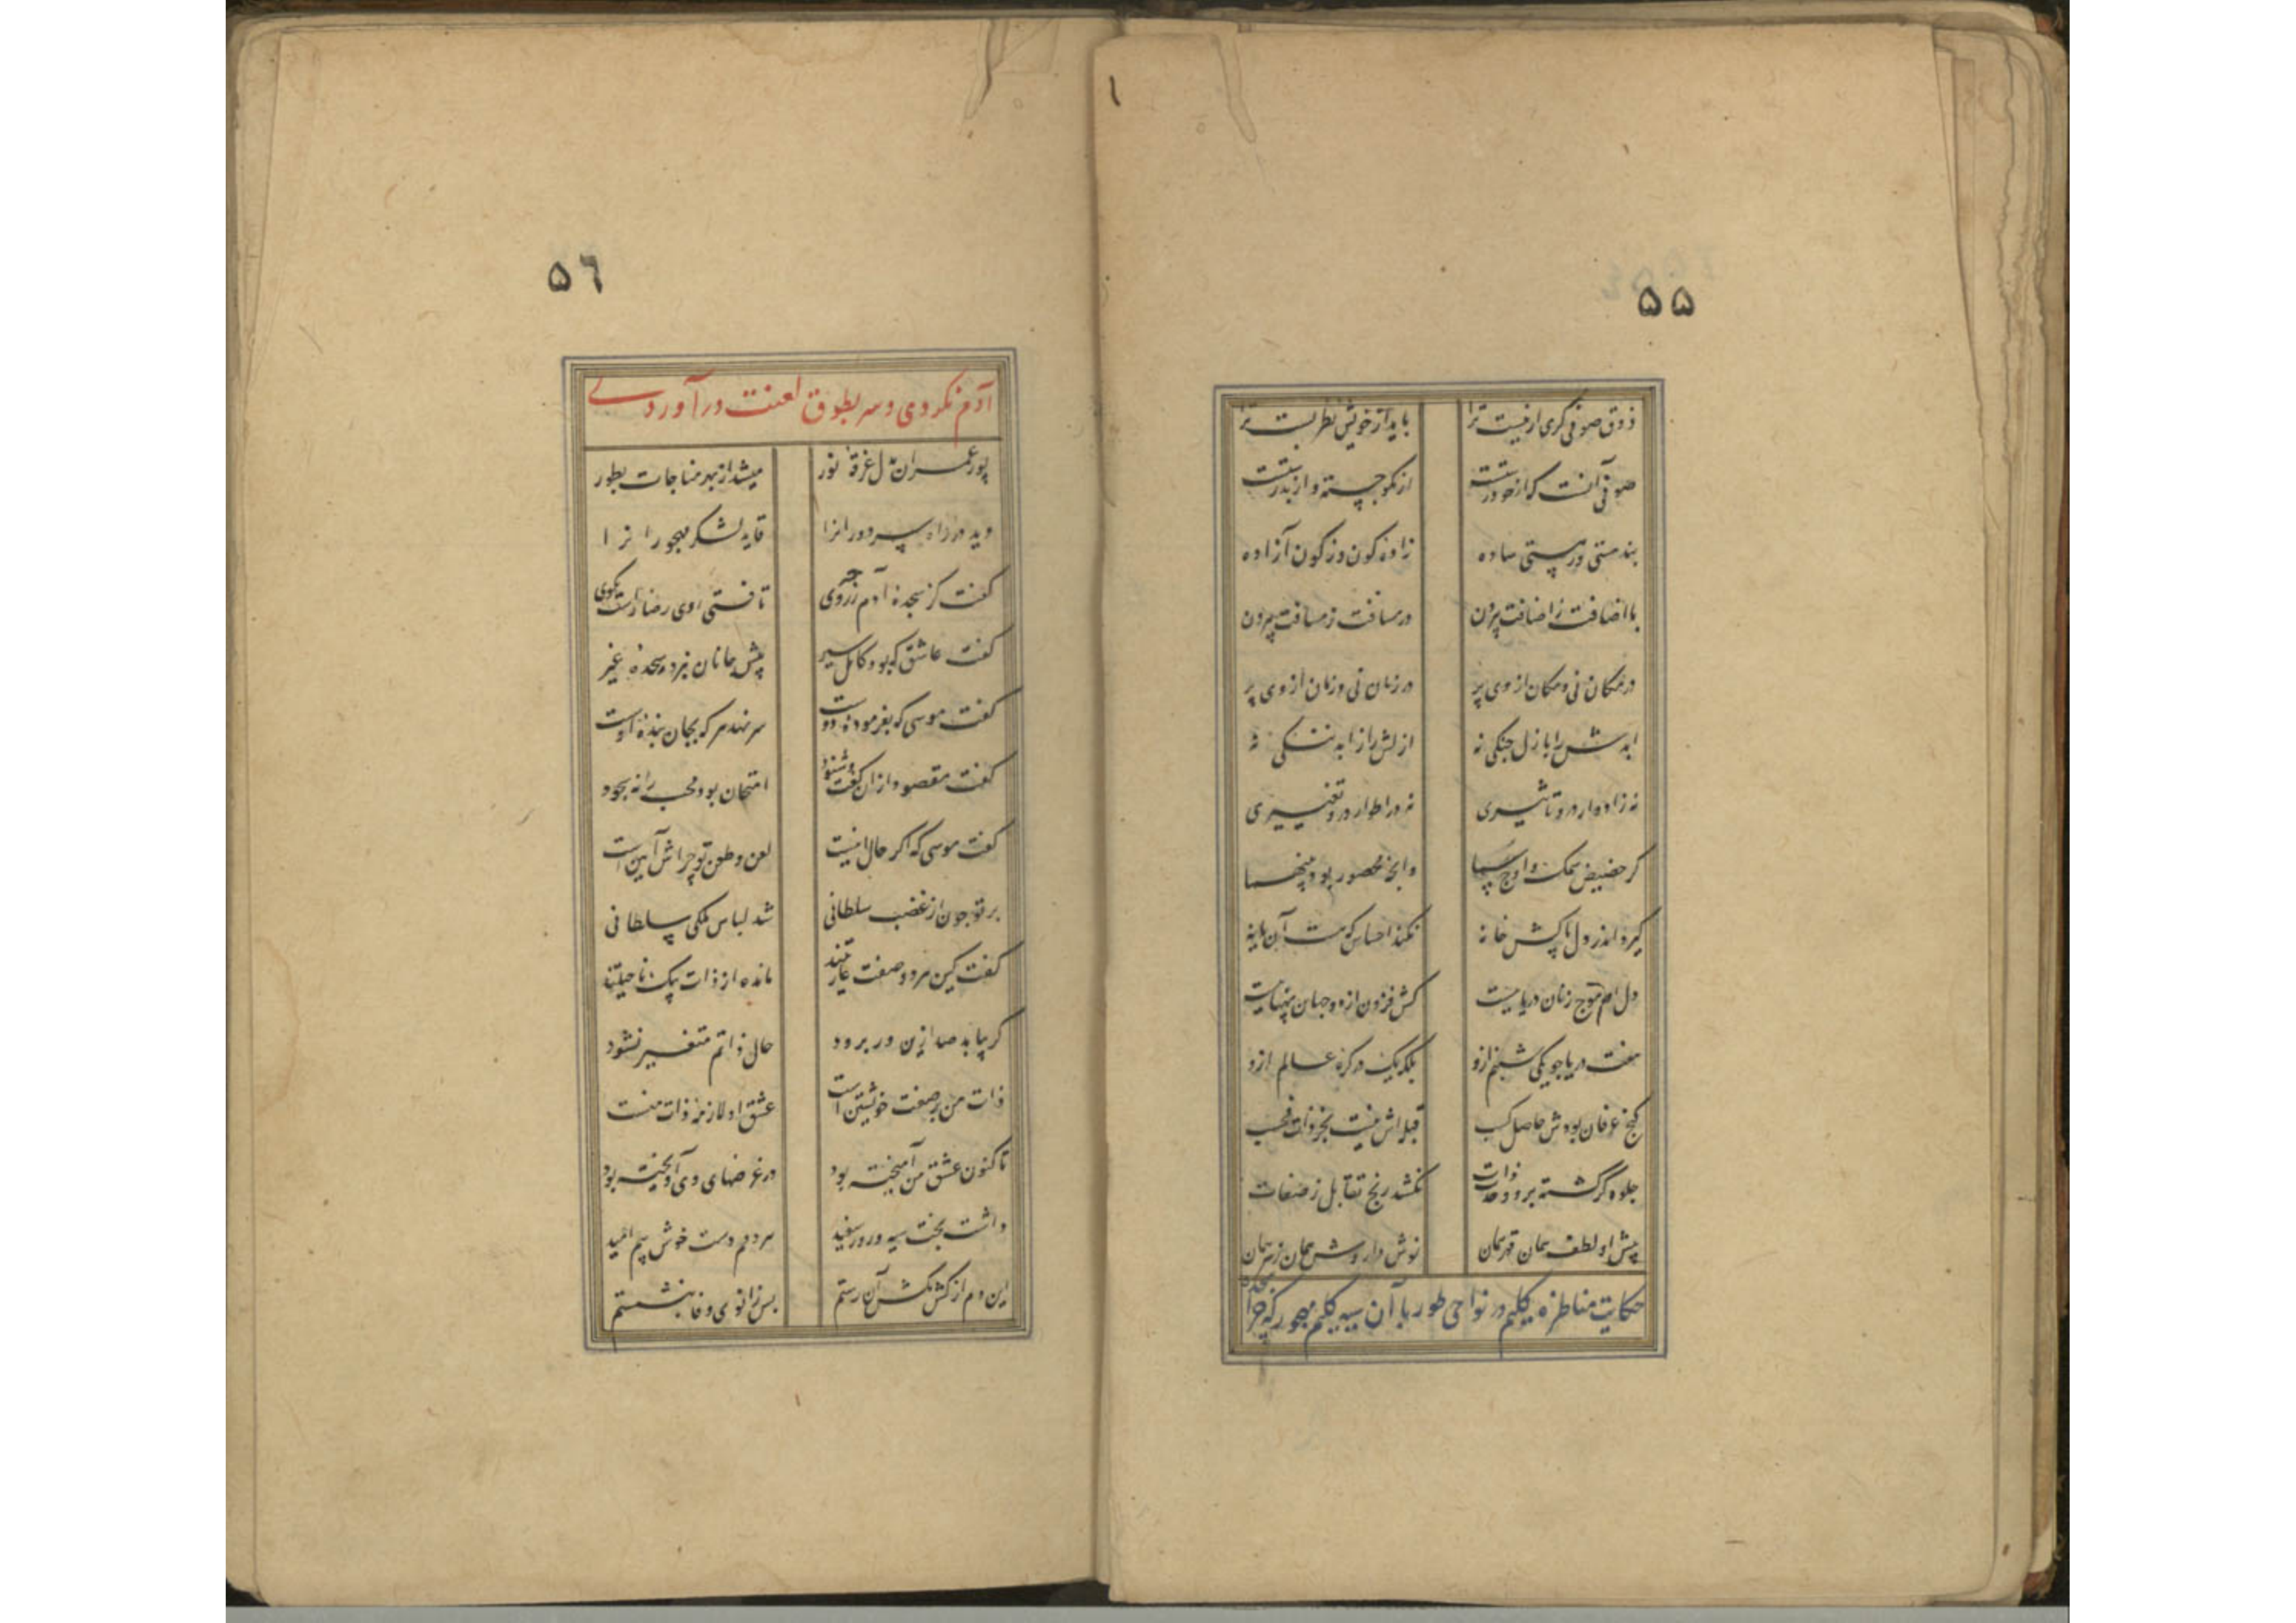 ۵۵
ذوق صوفی کری ار نیست ترا باید از خویش نظر بست ترا
صوفی آنست که از خود رسته از نکو جسته و از بد رسته
بند هستی و ز هستی ساده زاده کون و ز کون آزاده
با اضافت ز اضافت بیرون در مسافت ز مسافت بیرون
در مکان نی و مکان از وی پر در زمان نی و زمان از وی پر
ابدش را با زل جنکی نه ازلش را ز ابد ننکی نه
نه ز ادوار درو تاثیری نه در اطوار درو تغییری
کر حضیض سمک و اوج سما وانچه محصور بود بینهما
کیرد اندر دل پاکش خانه نکند احساس که هست آن یا نه
دل او موج زنان دریاییست کش فزون از دو جهان پهناییست
هفت دریا چو یکی شبنم ازو بلکه یک در کره عالم ازو
کنج عرفان بودش حاصل کسب قبله اش نیست بجز ذات فحسب
جلوه کر کشته برو وحدت ذات نکشد رنج تقابل ز صفات
پیش او لطف همان قهر همان نوش دارو ش همان زهر همان
حکایت مناظره کلیم در نواحی طور با آن سیه کلیم مهجور که چرا سجده
۵٦
آدم نکردی و سر بطوق لعنت در آوردی
پور عمران بدل غرقه نور میشد از بهر مناجات بطور
دید در راه سر دورانرا قاید لشکر مهجورانرا
کفت کز سجده آدم ز چه روی تافتی روی رضا راست بکوی
کفت عاشق که بود کامل سیر پیش جانان نبرد سجده غیر
کفت موسی که بفرموده دوست سر نهد هر که بجان بنده اوست
کفت مقصود از ان کفت و شنود امتحان بود محب را نه سجود
کفت موسی که اکر حال اینست لعن و طعن تو چرا ش آیین است
بر تو چون از غضب سلطانی شد لباس ملکی شیطانی
کفت کین هر دو صفت عاریتند مانده از ذات بیک ناحیتند
کر بیاید صد ازین ور برود حال ذاتم متغیر نشود
ذات من بر صفت خویشتن است عشق او لازمه ذات منست
تا کنون عشق من آمیخته بود در غرضهای وی آویخته بود
داشت بخت سیه و روز سفید هر دم دست خوش بیم و امید
این دم از کش مکش آن رستم پس زانوی وفا بنشستم